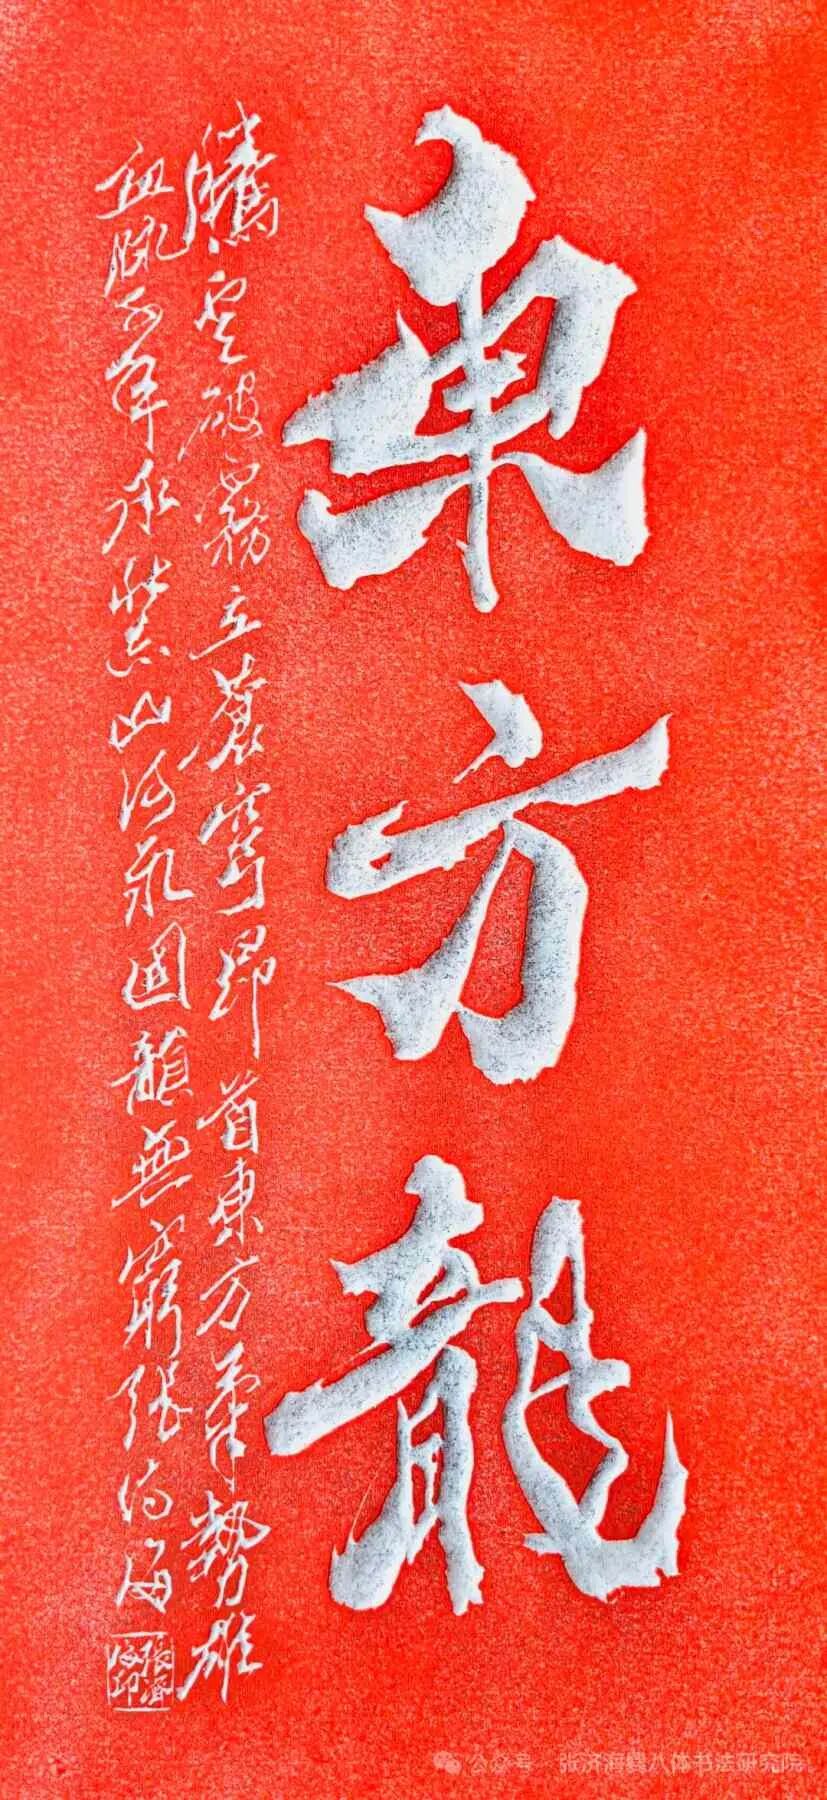 東方龍
騰空破霧立蒼穹昂首東方筆勢雄
血脈千年承業山河永固韻無窮張濟海
張濟海印
公众号 · 张济海魏八体书法研究院